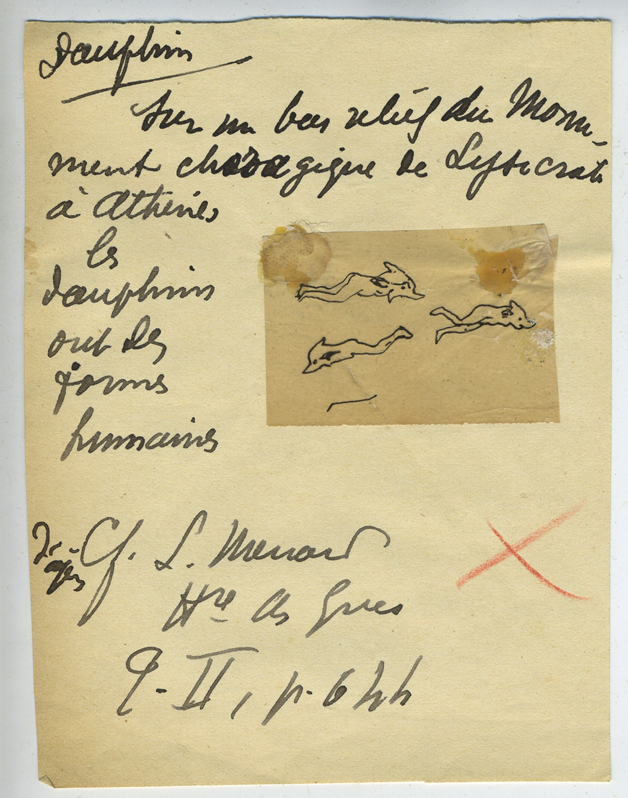 Dauphin
Sur un bas relief du Monu-
ment choragique de Lysicrate
à Athènes
les
dauphins
ont des
formes
humaines
Cf. L. Menard
Hre des Grecs
T. II, p. 644